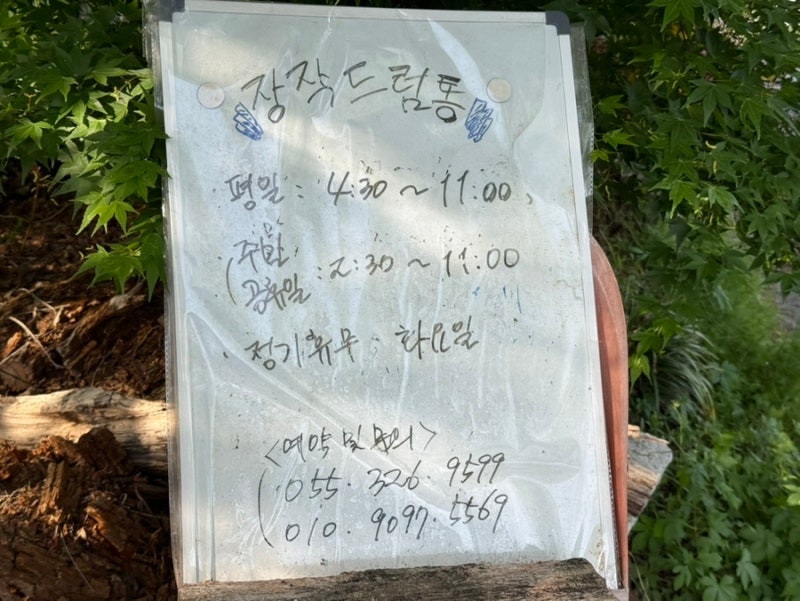 장작드럼통
평일 : 4:30 ~ 11:00
( 주말
공휴일 : 2:30 ~ 11:00
정기휴무 : 화요일
<예약 및 문의>
( 055. 326. 9599
010. 9097. 5569